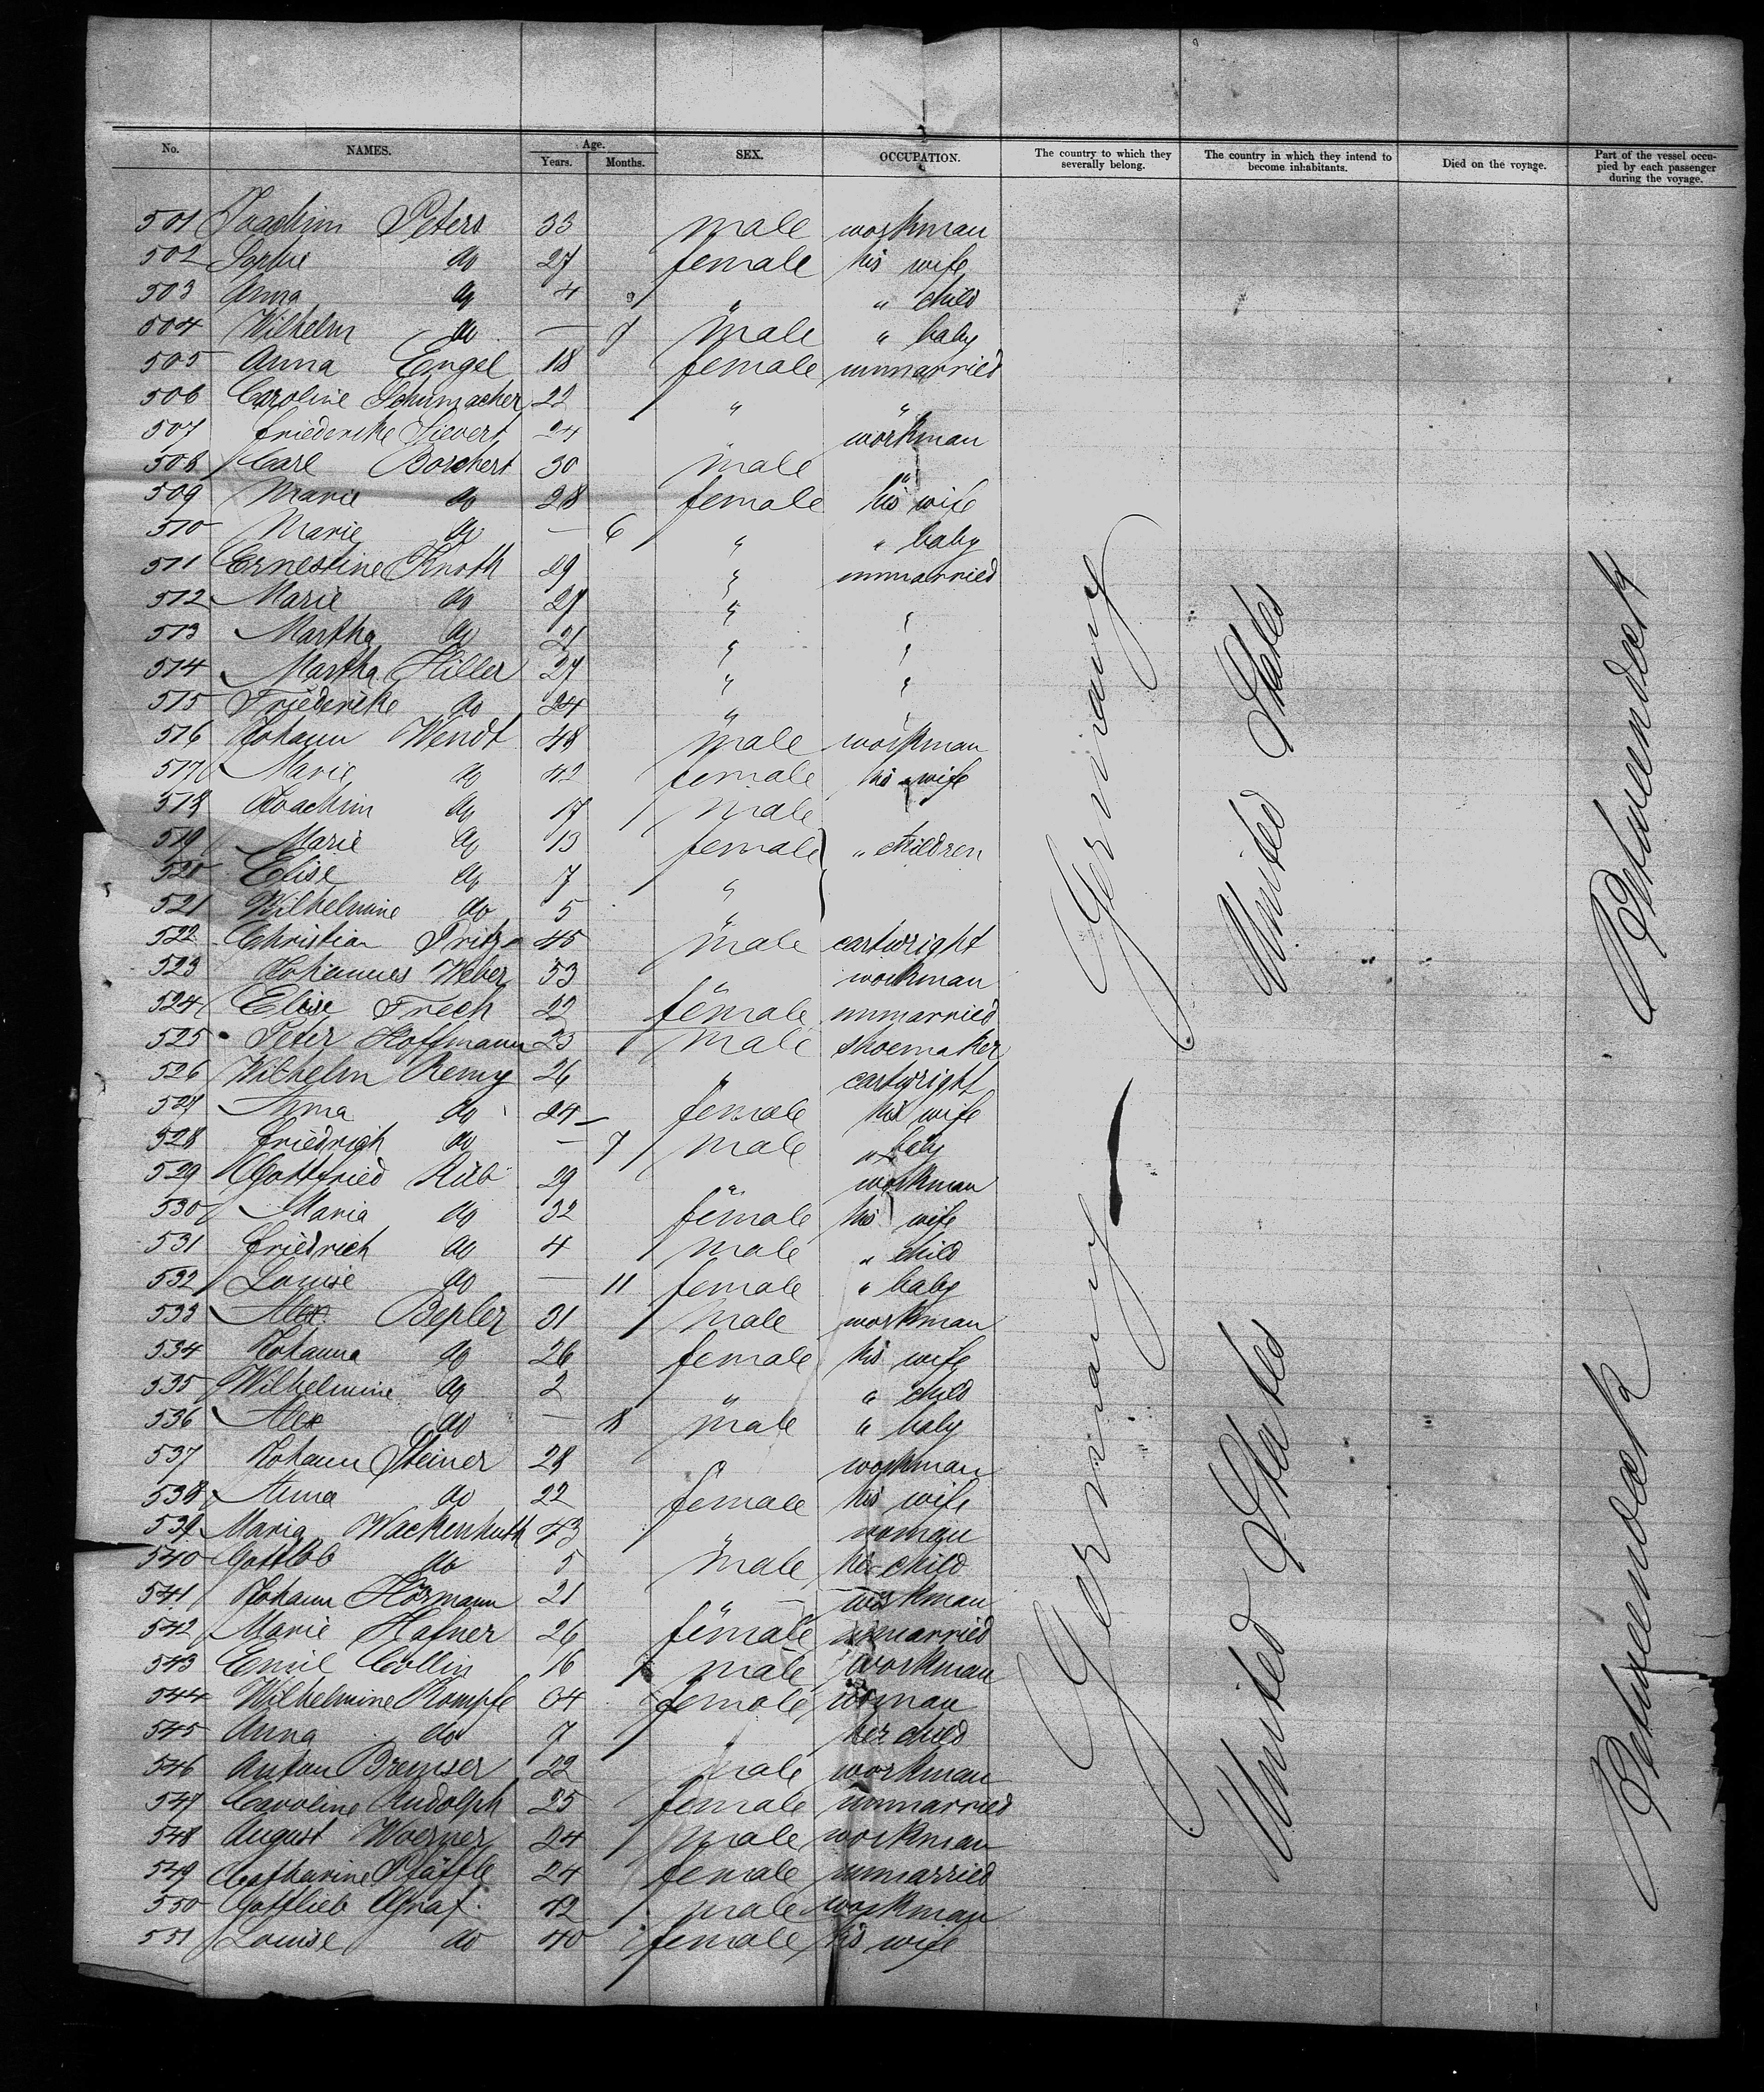 No. NAMES. Age. Years. Months. SEX. OCCUPATION. The country to which they severally belong. The country in which they intend to become inhabitants. Died on the voyage. Part of the vessel occupied by each passenger during the voyage.
501 Joachim Peters 33 male workman
502 Sophie do 27 female his wife
503 Anna do 4 " " child
504 Wilhelm do — 7 male " baby
505 Anna Engel 18 female unmarried
506 Caroline Schumacher 22 " "
507 Friederike Sievert 24 " workman
508 Carl Borchert 30 male "
509 Marie do 28 female his wife
510 Marie do — 6 " " baby
511 Ernestine Knoth 29 " unmarried
512 Marie do 27 " "
513 Martha do 21 " "
514 Martha Hiller 27 " "
515 Friederike do 24 " "
516 Johann Wendt 48 male workman
517 Marie do 42 female his wife
518 Joachim do 17 male
519 Marie do 13 female " children
520 Elise do 7 "
521 Wilhelmine do 5 "
522 Christian Pritz 45 male cartwright
523 Johannes Weber 53 " workman
524 Elise Frech 22 female unmarried
525 Peter Hoffmann 23 male shoemaker
526 Wilhelm Remy 26 " cartwright
527 Anna do 24 female his wife
528 Friedrich do — 7 male " baby
529 Gottfried Rüb 29 " workman
530 Maria do 32 female his wife
531 Friedrich do 4 male " child
532 Louise do — 11 female " baby
533 Alex. Bepler 31 male workman
534 Johanna do 26 female his wife
535 Wilhelmine do 2 " " child
536 Alex do — 8 male " baby
537 Johann Steiner 28 workman
538 Anna do 22 female his wife
539 Maria Wackenhuth 43 " woman
540 Gottlob do 5 male her child
541 Johann Hörmann 21 " workman
542 Marie Hafner 26 female unmarried
543 Emil Collin 16 male workman
544 Wilhelmine Kompfe 34 female woman
545 Anna do 7 " her child
546 Anton Bremser 22 male workman
547 Caroline Rudolph 25 female unmarried
548 August Woerner 24 male workman
549 Catharine Stäffle 24 female unmarried
550 Gottlieb Graf 42 male workman
551 Louise do 40 female his wife
Germany
Germany
United States
United States
Betweendeck
Betweendeck